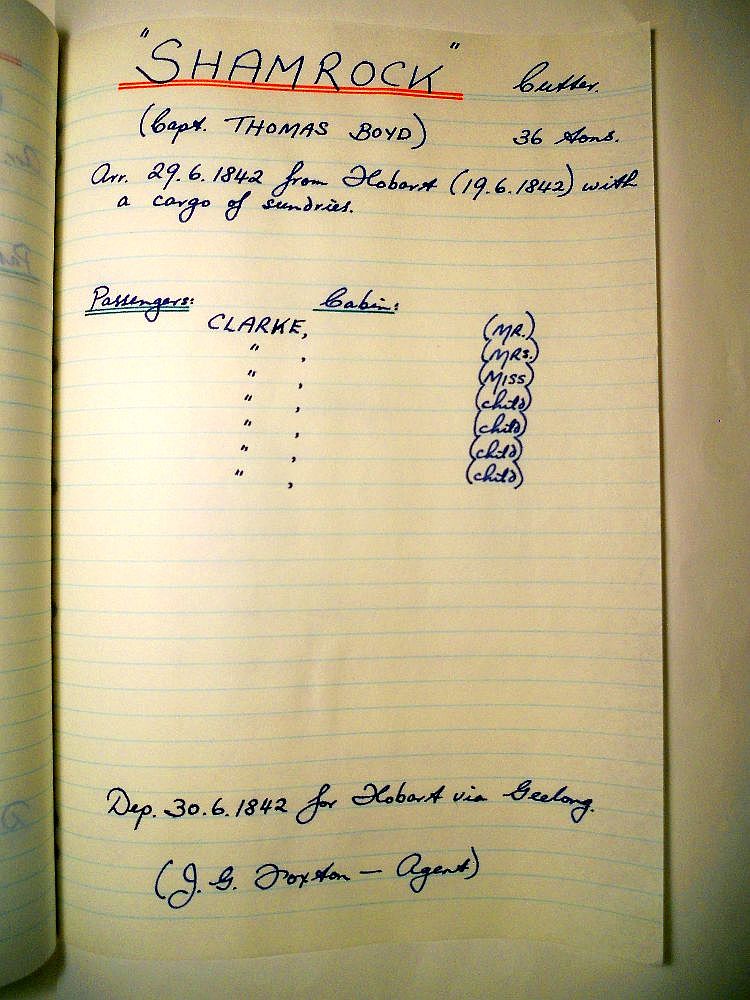 "SHAMROCK" Cutter.
(Capt. THOMAS BOYD) 36 tons.
Arr. 29.6.1842 from Hobart (19.6.1842) with
a cargo of sundries.
Passengers: Cabin:
CLARKE, (MR.)
" , (MRS.)
" , (MISS)
" , (child)
" , (child)
" , (child)
" , (child)
Dep. 30.6.1842 for Hobart via Geelong.
(J. G. Foxton — Agent)